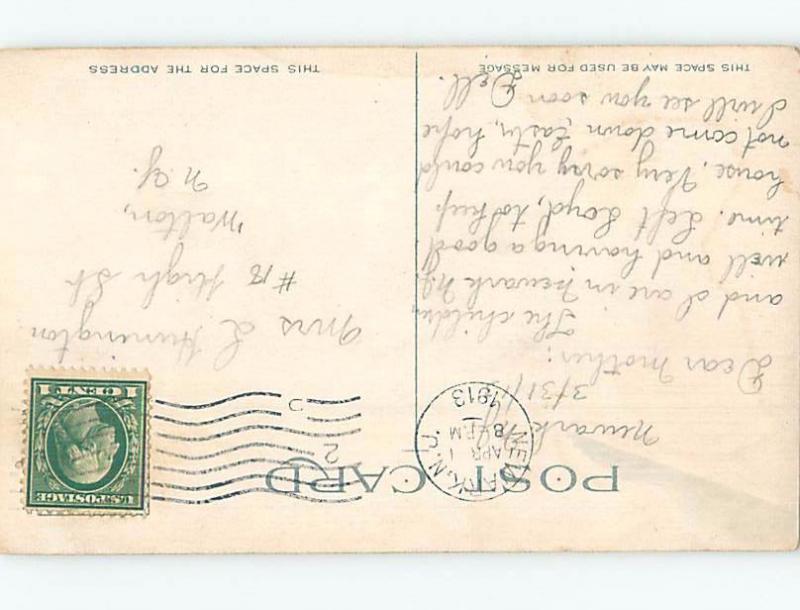 POST CARD
NEWARK, N.J.
APR 1
8-PM
1913
2
U.S. POSTAGE
1 CENT 1
Newark N.J.
3/31/13
Dear Mother:
The children,
and I are in Newark N.J.
well and having a good
time. Left Loyd, to keep
house. Very sorry you could
not come down Easter, hope
I will see you soon
Dell.
THIS SPACE MAY BE USED FOR MESSAGE
Mrs L Hunington
#18 High St
Walton,
N.Y.
THIS SPACE FOR THE ADDRESS